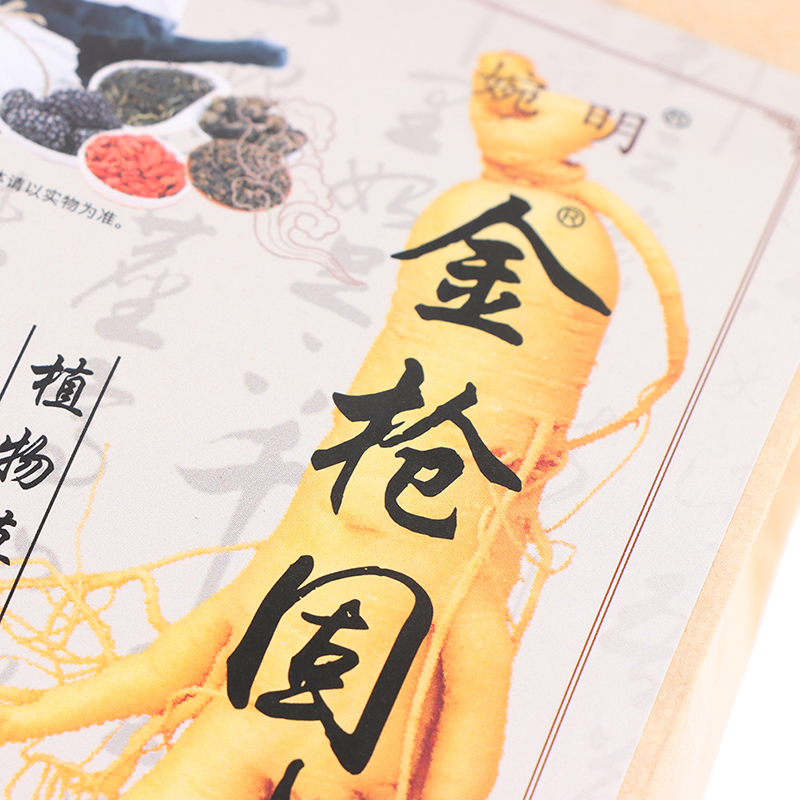 婉明®
请以实物为准。
金®
枪
固
植
物